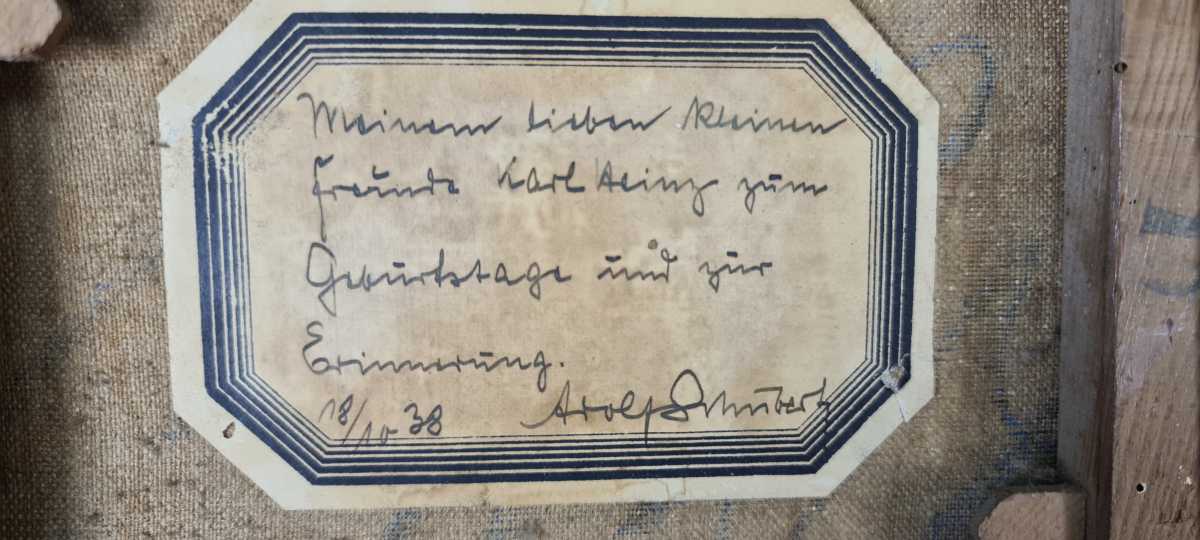 Meinem lieben kleinen
Freunde Karl Heinz zum
Geburtstage und zur
Erinnerung.
18/10 38 Adolf Schubert